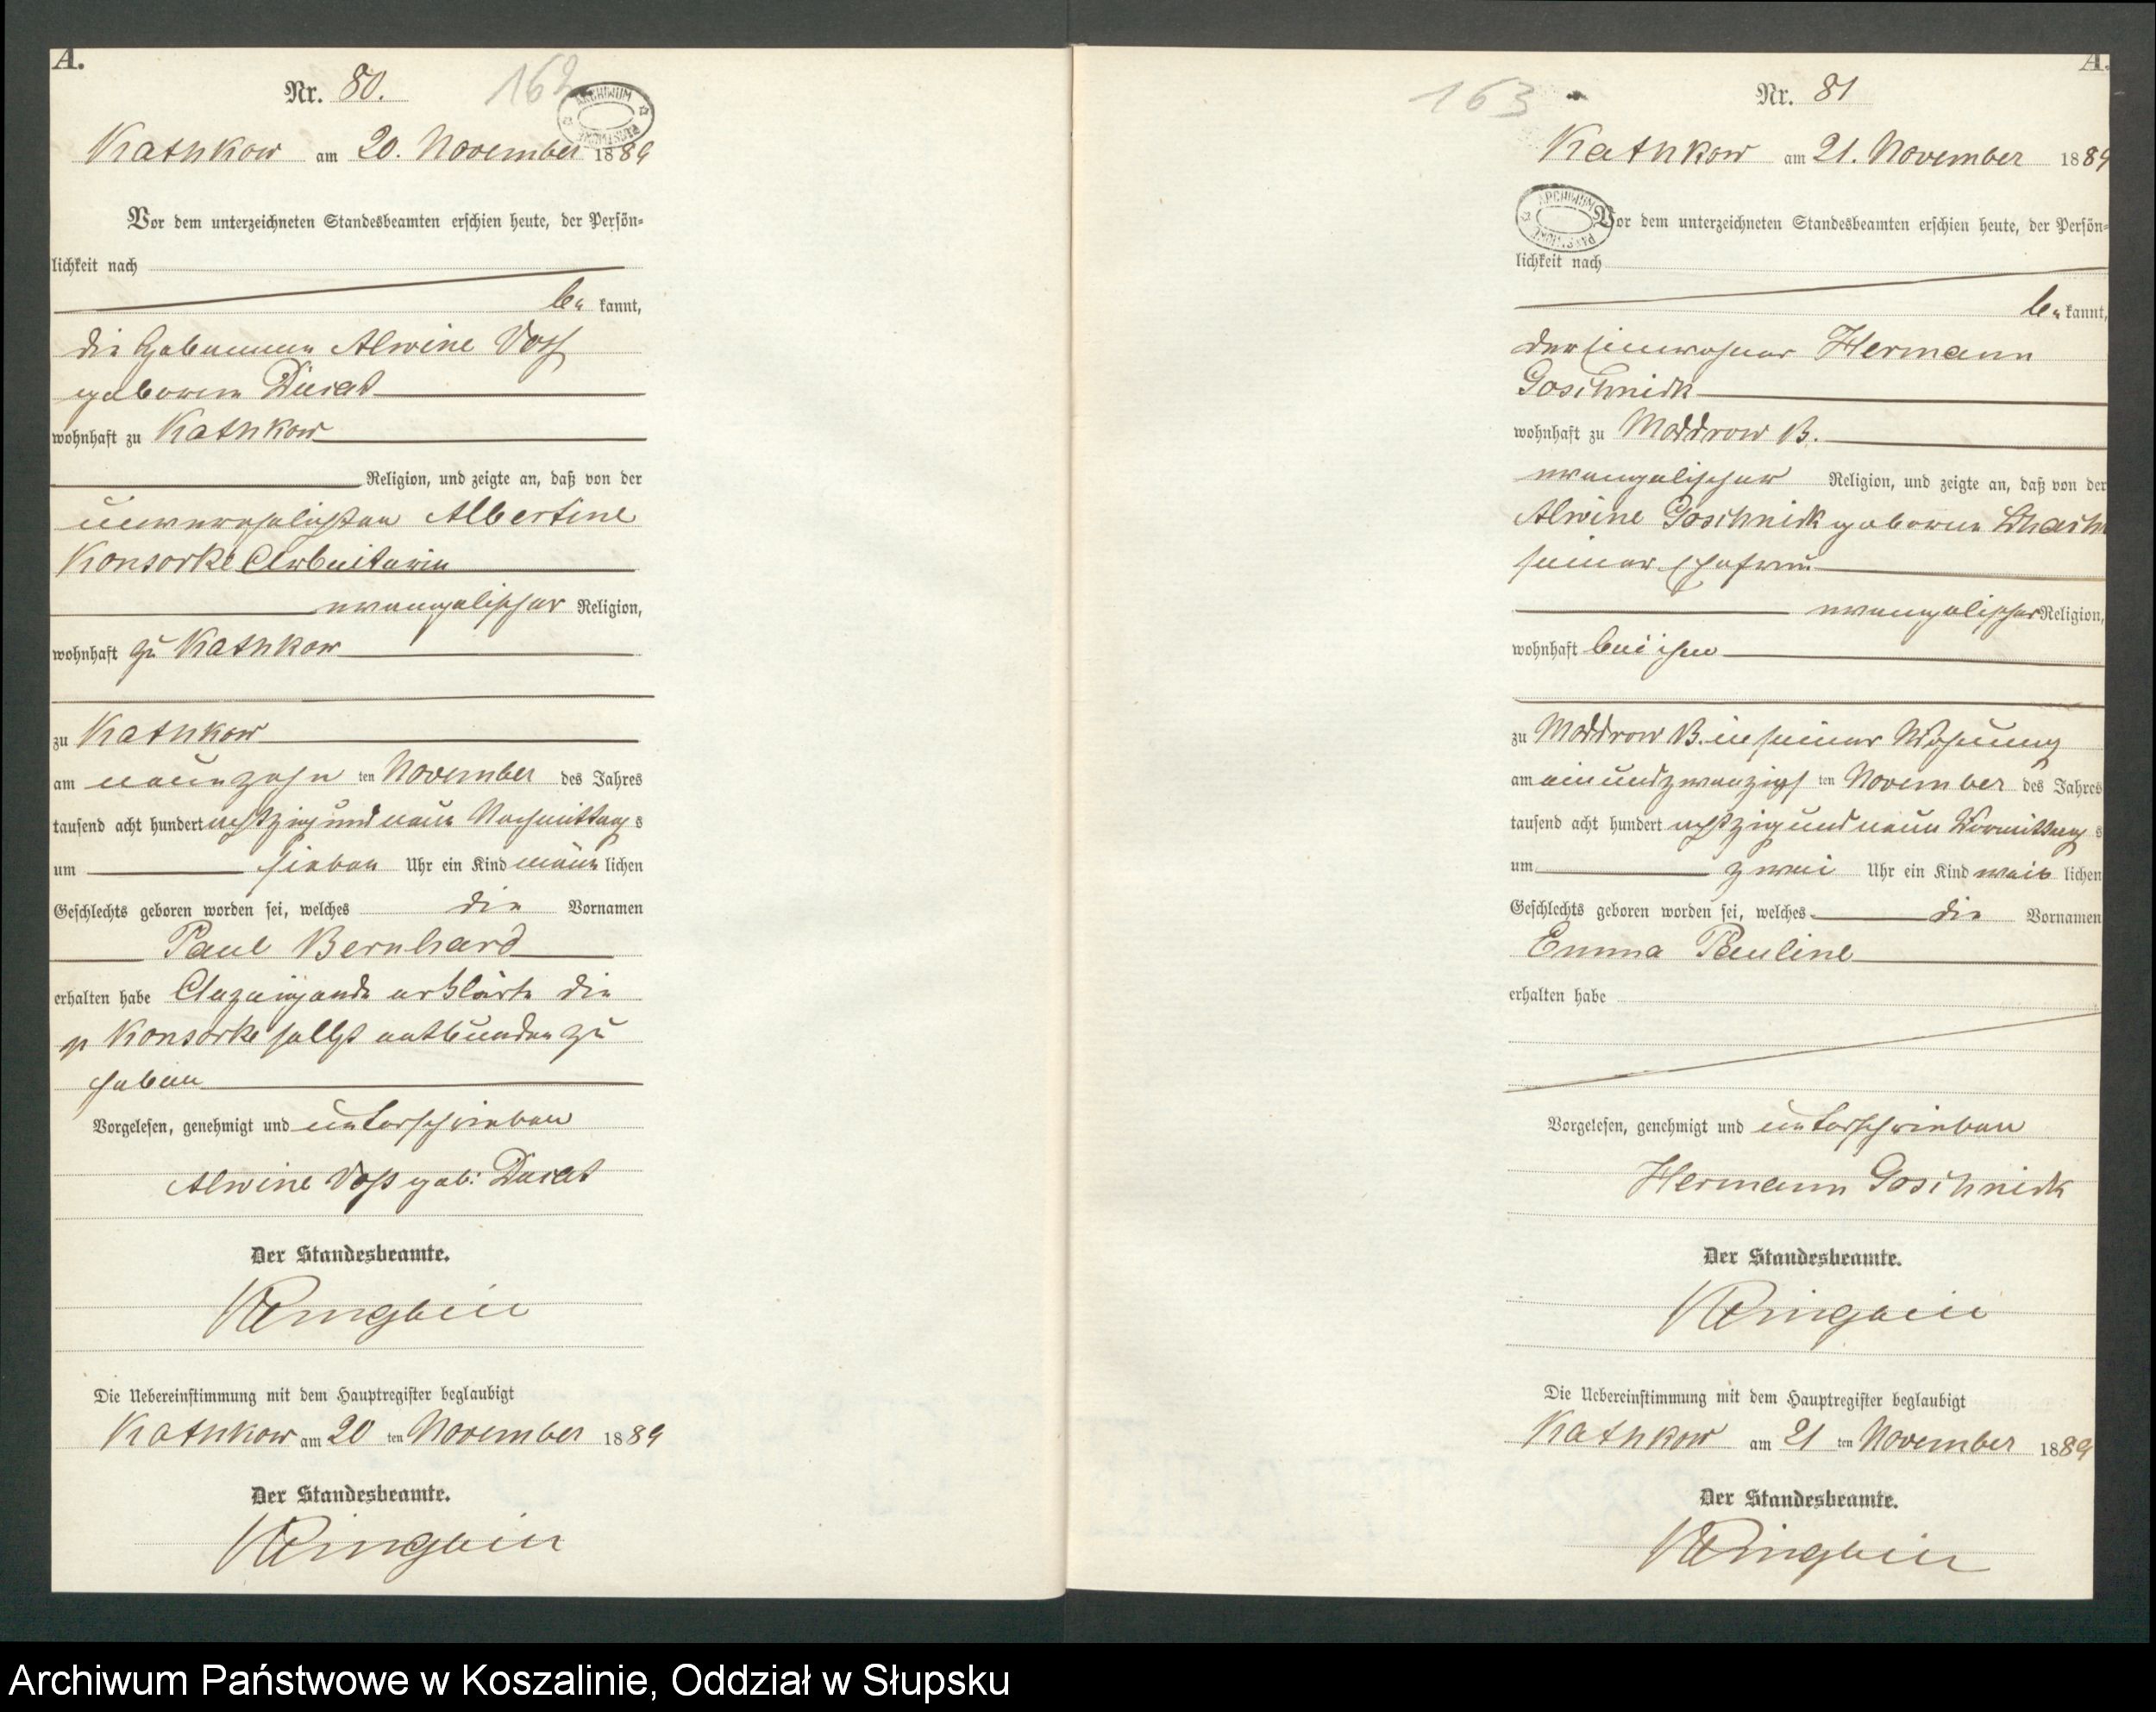 A.
Nr. 80.
162
ARCHIWUM PAŃSTWOWE
Kathkow am 20. November 1889
Vor dem unterzeichneten Standesbeamten erschien heute, der Persön-
lichkeit nach
be kannt,
die Hebamme Alwine Voß
geborene
wohnhaft zu Kathkow
Religion, und zeigte an, daß von der
unverehelichten Albertine
Konsorke Arbeiterin
evangelischer Religion,
wohnhaft zu Kathkow
zu Kathkow
am neunzehn ten November des Jahres
tausend acht hundert achtzig und neun Nachmittags
um sieben Uhr ein Kind männlichen
Geschlechts geboren worden sei, welches die Vornamen
Paul Bernhard
erhalten habe Anzeigende erklärte die
p Konsorke selbst entbunden zu
haben
Vorgelesen, genehmigt und unterschrieben
Alwine Voß geb:
Der Standesbeamte.
Die Uebereinstimmung mit dem Hauptregister beglaubigt
Kathkow am 20 ten November 1889
Der Standesbeamte.
A.
163
Nr. 81
Kathkow am 21. November 1889
ARCHIWUM PAŃSTWOWE
Vor dem unterzeichneten Standesbeamten erschien heute, der Persön-
lichkeit nach
be kannt,
der Einwohner Hermann
Goschnick
wohnhaft zu Moddrow B.
evangelischer Religion, und zeigte an, daß von der
Alwine Goschnick geborene
seiner Ehefrau
evangelischer Religion,
wohnhaft bei ihm
zu Moddrow B. in seiner Wohnung
am einundzwanzigsten November des Jahres
tausend acht hundert achtzig und neun Vormittags
um zwei Uhr ein Kind weiblichen
Geschlechts geboren worden sei, welches die Vornamen
Emma Pauline
erhalten habe
Vorgelesen, genehmigt und unterschrieben
Hermann Goschnick
Der Standesbeamte.
Die Uebereinstimmung mit dem Hauptregister beglaubigt
Kathkow am 21 ten November 1889
Der Standesbeamte.
Archiwum Państwowe w Koszalinie, Oddział w Słupsku